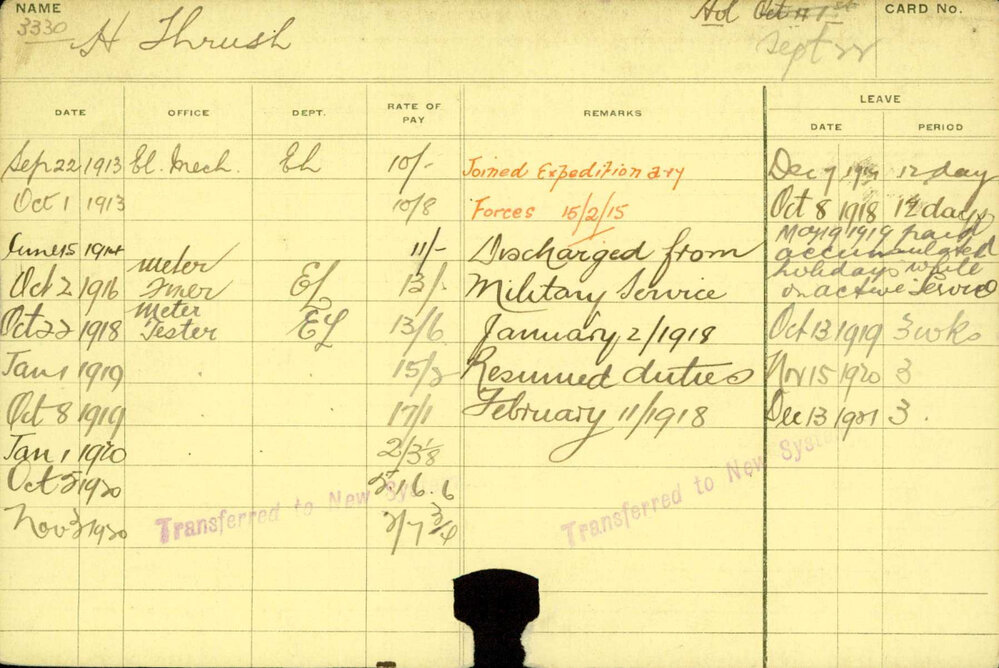 NAME
3330
H Thrush
Sept 22
CARD No.
DATE OFFICE DEPT. RATE OF PAY REMARKS LEAVE
DATE PERIOD
Sep 22 1913 El. Mech. El 10/- Joined Expeditionary Dec 9 12 day
Oct 1 1913 10/8 Forces 15/2/15 Oct 8 1918 days
June 15 1914 11/- Discharged from May 19 1919 paid
accumulated
holidays while
on active service
Meter
Oct 2 1916 EL 13/- Military Service
Meter
Oct 22 1918 Tester EL 13/6 January 2/1918 Oct 13 1919 3 wks
Jan 1 1919 15/2 Resumed duties Nov 15 1920 3
Oct 8 1919 17/1 February 11/1918 Dec 13 1921 3.
Jan 1 1920 2/3 1/8
Oct 1920
Nov 1920 2/7 3/4
Transferred to New System
Transferred to New System